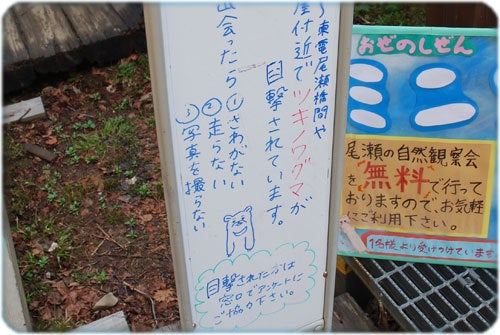 〜東電尾瀬橋間や
付近でツキノワグマが
目撃されています。
出会ったら①さわがない
②走らない
③写真を撮らない
目撃された方は
窓口でアンケートに
ご協力下さい。
おぜのしぜん
ミニ
尾瀬の自然観察会
を無料で行って
おりますので、お気軽
にご利用下さい。
1名様より受けつけています